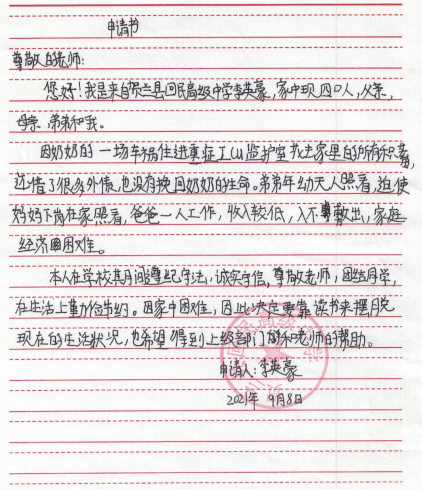 申请书
尊敬的老师:
您好!我是来自贺兰县回民高级中学李英豪,家中现四口人,父亲,
母亲 弟弟和我。
因奶奶的一场车祸住进重症ICU监护室 花去家里的所有积蓄,
还借了很多外债,也没有换回奶奶的生命。弟弟年幼无人照看,迫使
妈妈下岗在家照看,爸爸一人工作,收入较低,入不敷出,家庭
经济困难。
本人在学校其月间遵纪守法,诚实守信,尊敬老师,团结同学,
在生活上勤俭节约。因家中困难,因此决定要靠读书来摆脱
现在的生活状况,也希望得到上级部门的和老师的帮助。
申请人:李英豪
2021年 9月8日